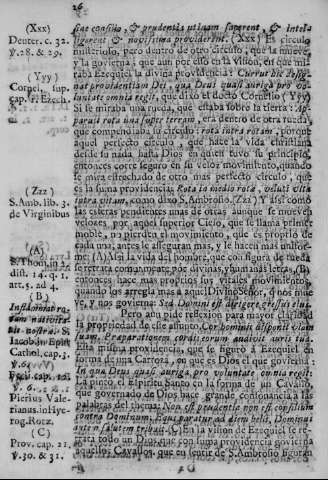 26
(Xxx)
Deuter. c. 32.
℣. 28. & 29.
(Yyy)
Cornel. sup.
cap. 1. Ezech.
(Zzz)
S. Amb. lib. 3.
de Virginibus
(A)
S. Thom. in
dist. 14. q. 1.
art. 3. ad 4.
(B)
S.
Jacob. in Epist.
Cathol. cap. 3.
℣. 6.
Pierius Vale-
rianus. in Hye-
rog. Rotæ.
(C)
Prov. cap. 21.
℣. 30. & 31.
sine consilio, & prudentia utinam saperent, & intelli
gerent & novissima providerent. (Xxx) Es circulo
misterioso, pero dentro de otro circulo, que la mueve,
y la govierna; que aun por esso en la vision, en que mi-
raba Ezequiel la divina providencia: Currus hic desig-
nat providentiam Dei, qua Deus quasi auriga pro vo-
luntate omnia regit, que dixo el docto Cornelio (Yyy)
si se miraba una rueda, que estaba sobre la tierra: Ap-
paruit rota una juxta terram, era dentro de otra rueda
que compendiaba su circulo: rota intra rotam, porque
aquel perfecto circulo, que hace la vida christiana
desde su nada hasta Dios en quien tuvo su principio,
entonces corre seguro en su veloz movimiento, quando
se mira estrechado de otro mas perfecto circulo, que
es su misma providencia Rota in medio rotæ, veluti vita
intra vitam, como dixo S. Ambrosio. (Zzz) Y assi como
las esferas pendientes unas de otras, aunque se mueven
veloces, por aquel superior Cielo, que se llama primer
moble, no pierden el movimiento, que es proprio de
cada una; antes le asseguran mas, y le hacen mas unifor-
me: (A) Assi la vida del hombre, que con figura de rueda
se retrata comunmente por divinas, y humanas letras, (B)
entonces hace mas proprios sus vitales movimientos,
quando los arregla mas aquel Divino Señor, que nos mue-
ve, y nos govierna: Sed Domini est dirigere gressus ejus.
Pero aun pide reflexion para mayor claridad
la propiedad de este assunto. Cor hominis disponit viam
suam. Preparationem cordis eorum audivit auris tua.
misma providencia, que se figurò à Ezequiel en
forma de una Carroza, en que es Dios el que govierna:
In qua Deus quasi auriga pro voluntate omnia regit:
La pinto el Espiritu Santo en la forma de un Cavallo,
que governado de Dios hace grande consonancia à las
palabras del thema: Non est prudentia non est consilium
contra Dominum. Equus paratur ad diem belli, Dominus
autem salutem tribuit. (C) En la vision de Ezequiel se re-
trata todo un Dios, que con suma providencia govierna
aquellos Cavallos, que en sentir de S. Ambrosio figuran